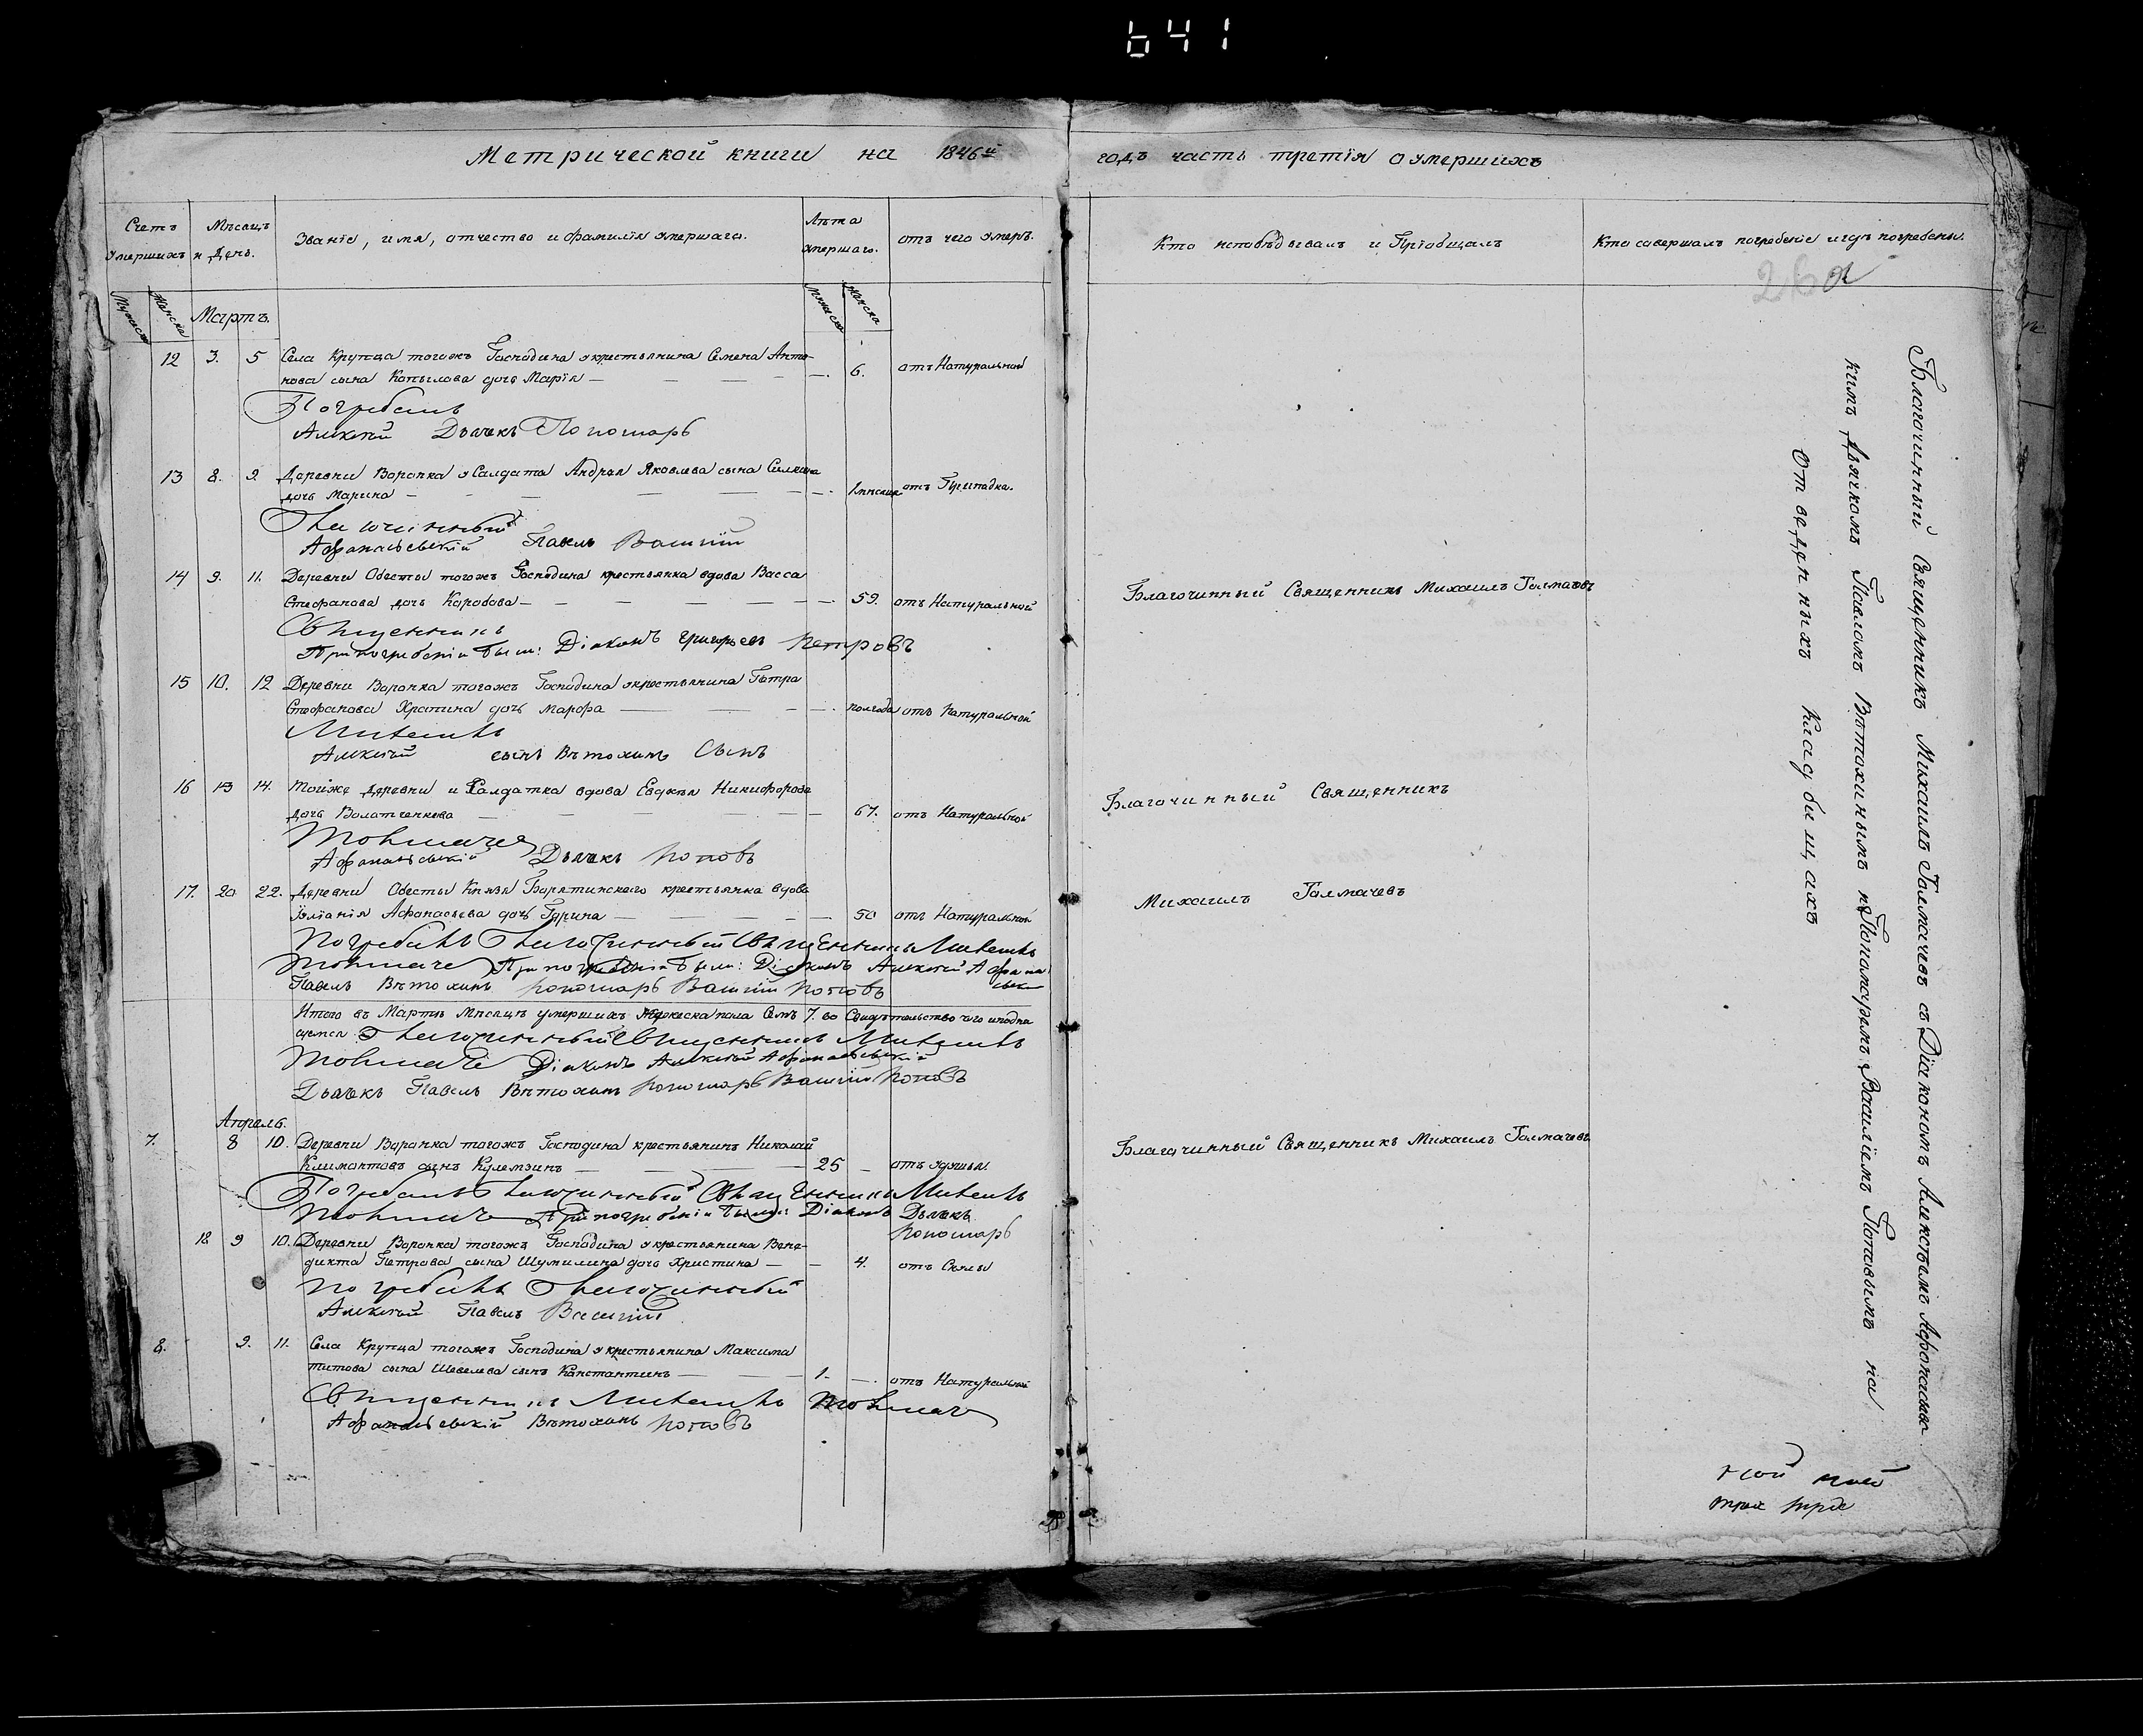 641
Метрической книги на 1846й
годъ часть третія о умершихъ
Счетъ умершихъ
Мѣсяцъ и День.
Званіе, имя, отчество и фамилія умершаго.
Лѣта умершаго.
отъ чего умеръ.
Кто исповѣдывалъ и Пріобщалъ
Кто совершалъ погребеніе и гдѣ погребены.
26
Мужеска
Женска
Мартъ.
Мужеска
Женска
12 3. 5 Села Крупца тогожъ Господина у крестьянина Семена Анто-
нова сына Копылова дочь Марія — 6. отъ Натуральной
Погребалъ
Алексѣй Дьячекъ Пономарь
13 8. 9. Деревни Воронка у Салдата Андрея Яковлева сына Силкина
дочь Марина — 1 мѣсяца отъ Припадка.
Благочинный
Афанасьевскій Павелъ Василій
14 9. 11. Деревни Обесты тогожъ Господина крестьянка вдова Васса
Стефанова дочь Коробова — 59. отъ Натуральной
Благочинный Священникъ Михаилъ Толмачевъ
Священникъ
При погребеніи были: Діаконъ Григорьевъ Петровъ
15 10. 12 Деревни Воронка тогожъ Господина у крестьянина Петра
Стефанова Хратина дочь Марфа — полгода отъ Натуральной
Михаилъ
Алексѣй сынъ Вѣтохинъ Сынъ
16 13 14. Тойже деревни и Салдатка вдова Евдокія Никифорова
дочь Волатченкова — 67. отъ Натуральной
Благочинный Священникъ
Толмачевъ
Афанасьевскій Дьячекъ Поповъ
17. 20 22. Деревни Обесты Князя Барятинскаго крестьянка вдова
Іуліанія Афанасьева дочь Гурина — 50 отъ Натуральной
Михаилъ Толмачевъ
Погребалъ Благочинный Священникъ Михаилъ
Толмачевъ При погребеніи были: Діаконъ Алексѣй Афанасьевск
Павелъ Вѣтохинъ Пономарь Василій Поповъ
Итого въ Мартѣ Мѣсяцѣ умершихъ женска пола Семь 7. во Свидѣтельство чего и подпи
суемся Благочинный Священникъ Михаилъ
Толмачевъ Діаконъ Алексѣй Афанасьевскій
Дьячекъ Павелъ Вѣтохинъ Пономарь Василій Поповъ
Апрель.
7. 8 10. Деревни Воронка тогожъ Господина крестьянинъ Николай
Климонтовъ сынъ Кулемзинъ — 25 — отъ удушья
Благочинный Священникъ Михаилъ Толмачевъ
Погребалъ Благочинный Священникъ Михаилъ
Толмачевъ При погребеніи были: Діаконъ Дьячекъ
Пономарь
18 9 10. Деревни Воронка тогожъ Господина у крестьянина Вене-
дикта Петрова сына Шумилина дочь Христина — 4. отъ Скулы
Погребалъ Благочинный
Алексѣй Павелъ Василій
8. 9. 11. Села Крупца тогожъ Господина у крестьянина Максима
титова сына Шевелева сынъ Константинъ — 1. — отъ Натуральной
Священникъ Михаилъ Толмачевъ
Афанасьевскій Вѣтохинъ Поповъ
Благочинный Священникъ Михаилъ Толмачевъ съ Діакономъ Алексѣемъ Афонасьевс
кимъ Дьячкомъ Павломъ Вѣтохинымъ и Пономаремъ Василіемъ Поповымъ на
отведенныхъ Кладбищахъ